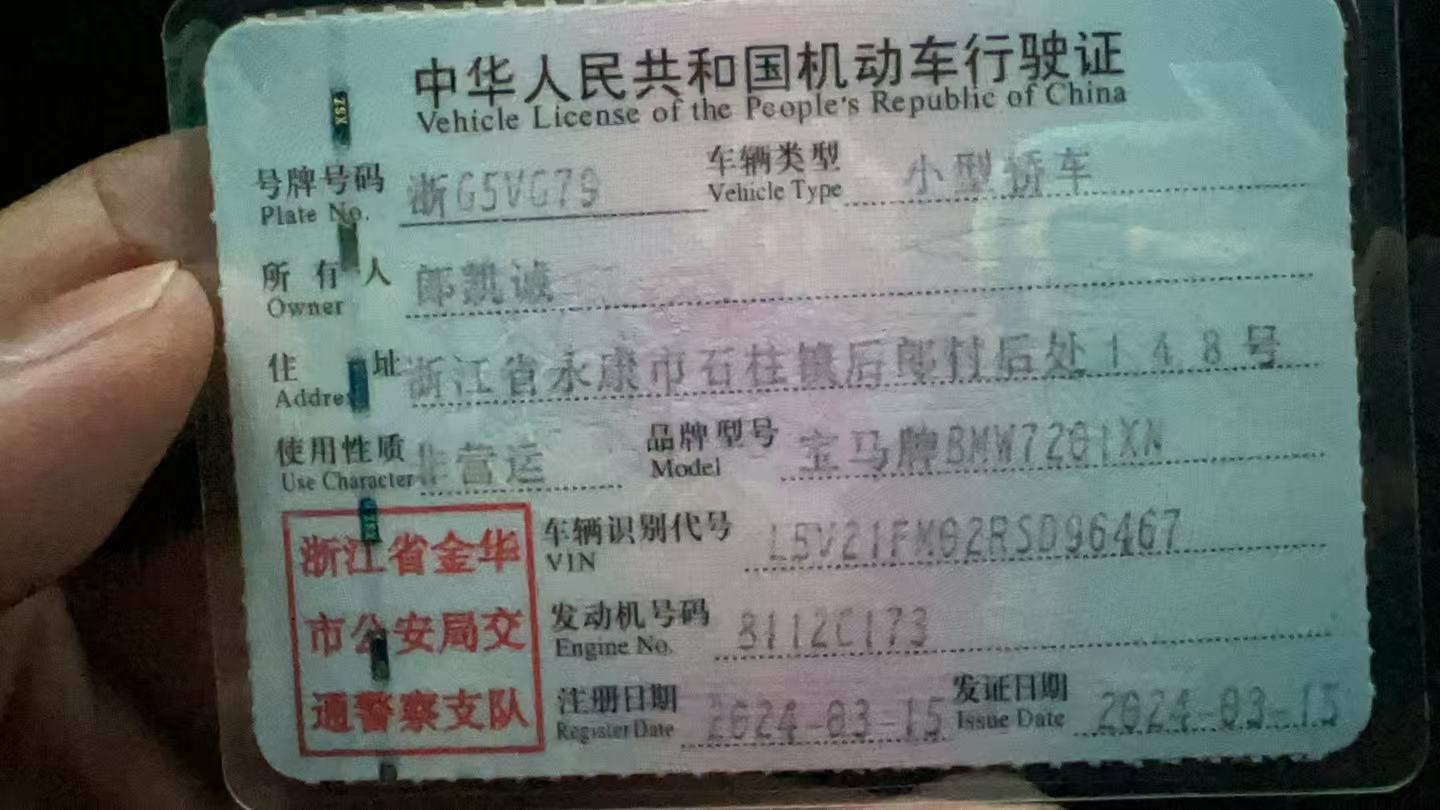 中华人民共和国机动车行驶证
Vehicle License of the People's Republic of China
号牌号码 浙G5VG79 车辆类型 小型轿车
Plate No. Vehicle Type
所有人 郎凯诚
Owner
住址 浙江省永康市石柱镇后郎村后处148号
Addre
使用性质 非营运 品牌型号 宝马牌BMW7201XN
Use Character Model
浙江省金华
市公安局交
通警察支队
车辆识别代号 LBV21FM02RSD96467
VIN
发动机号码 8112C173
Engine No.
注册日期 2024-03-15 发证日期 2024-03-15
Register Date Issue Date